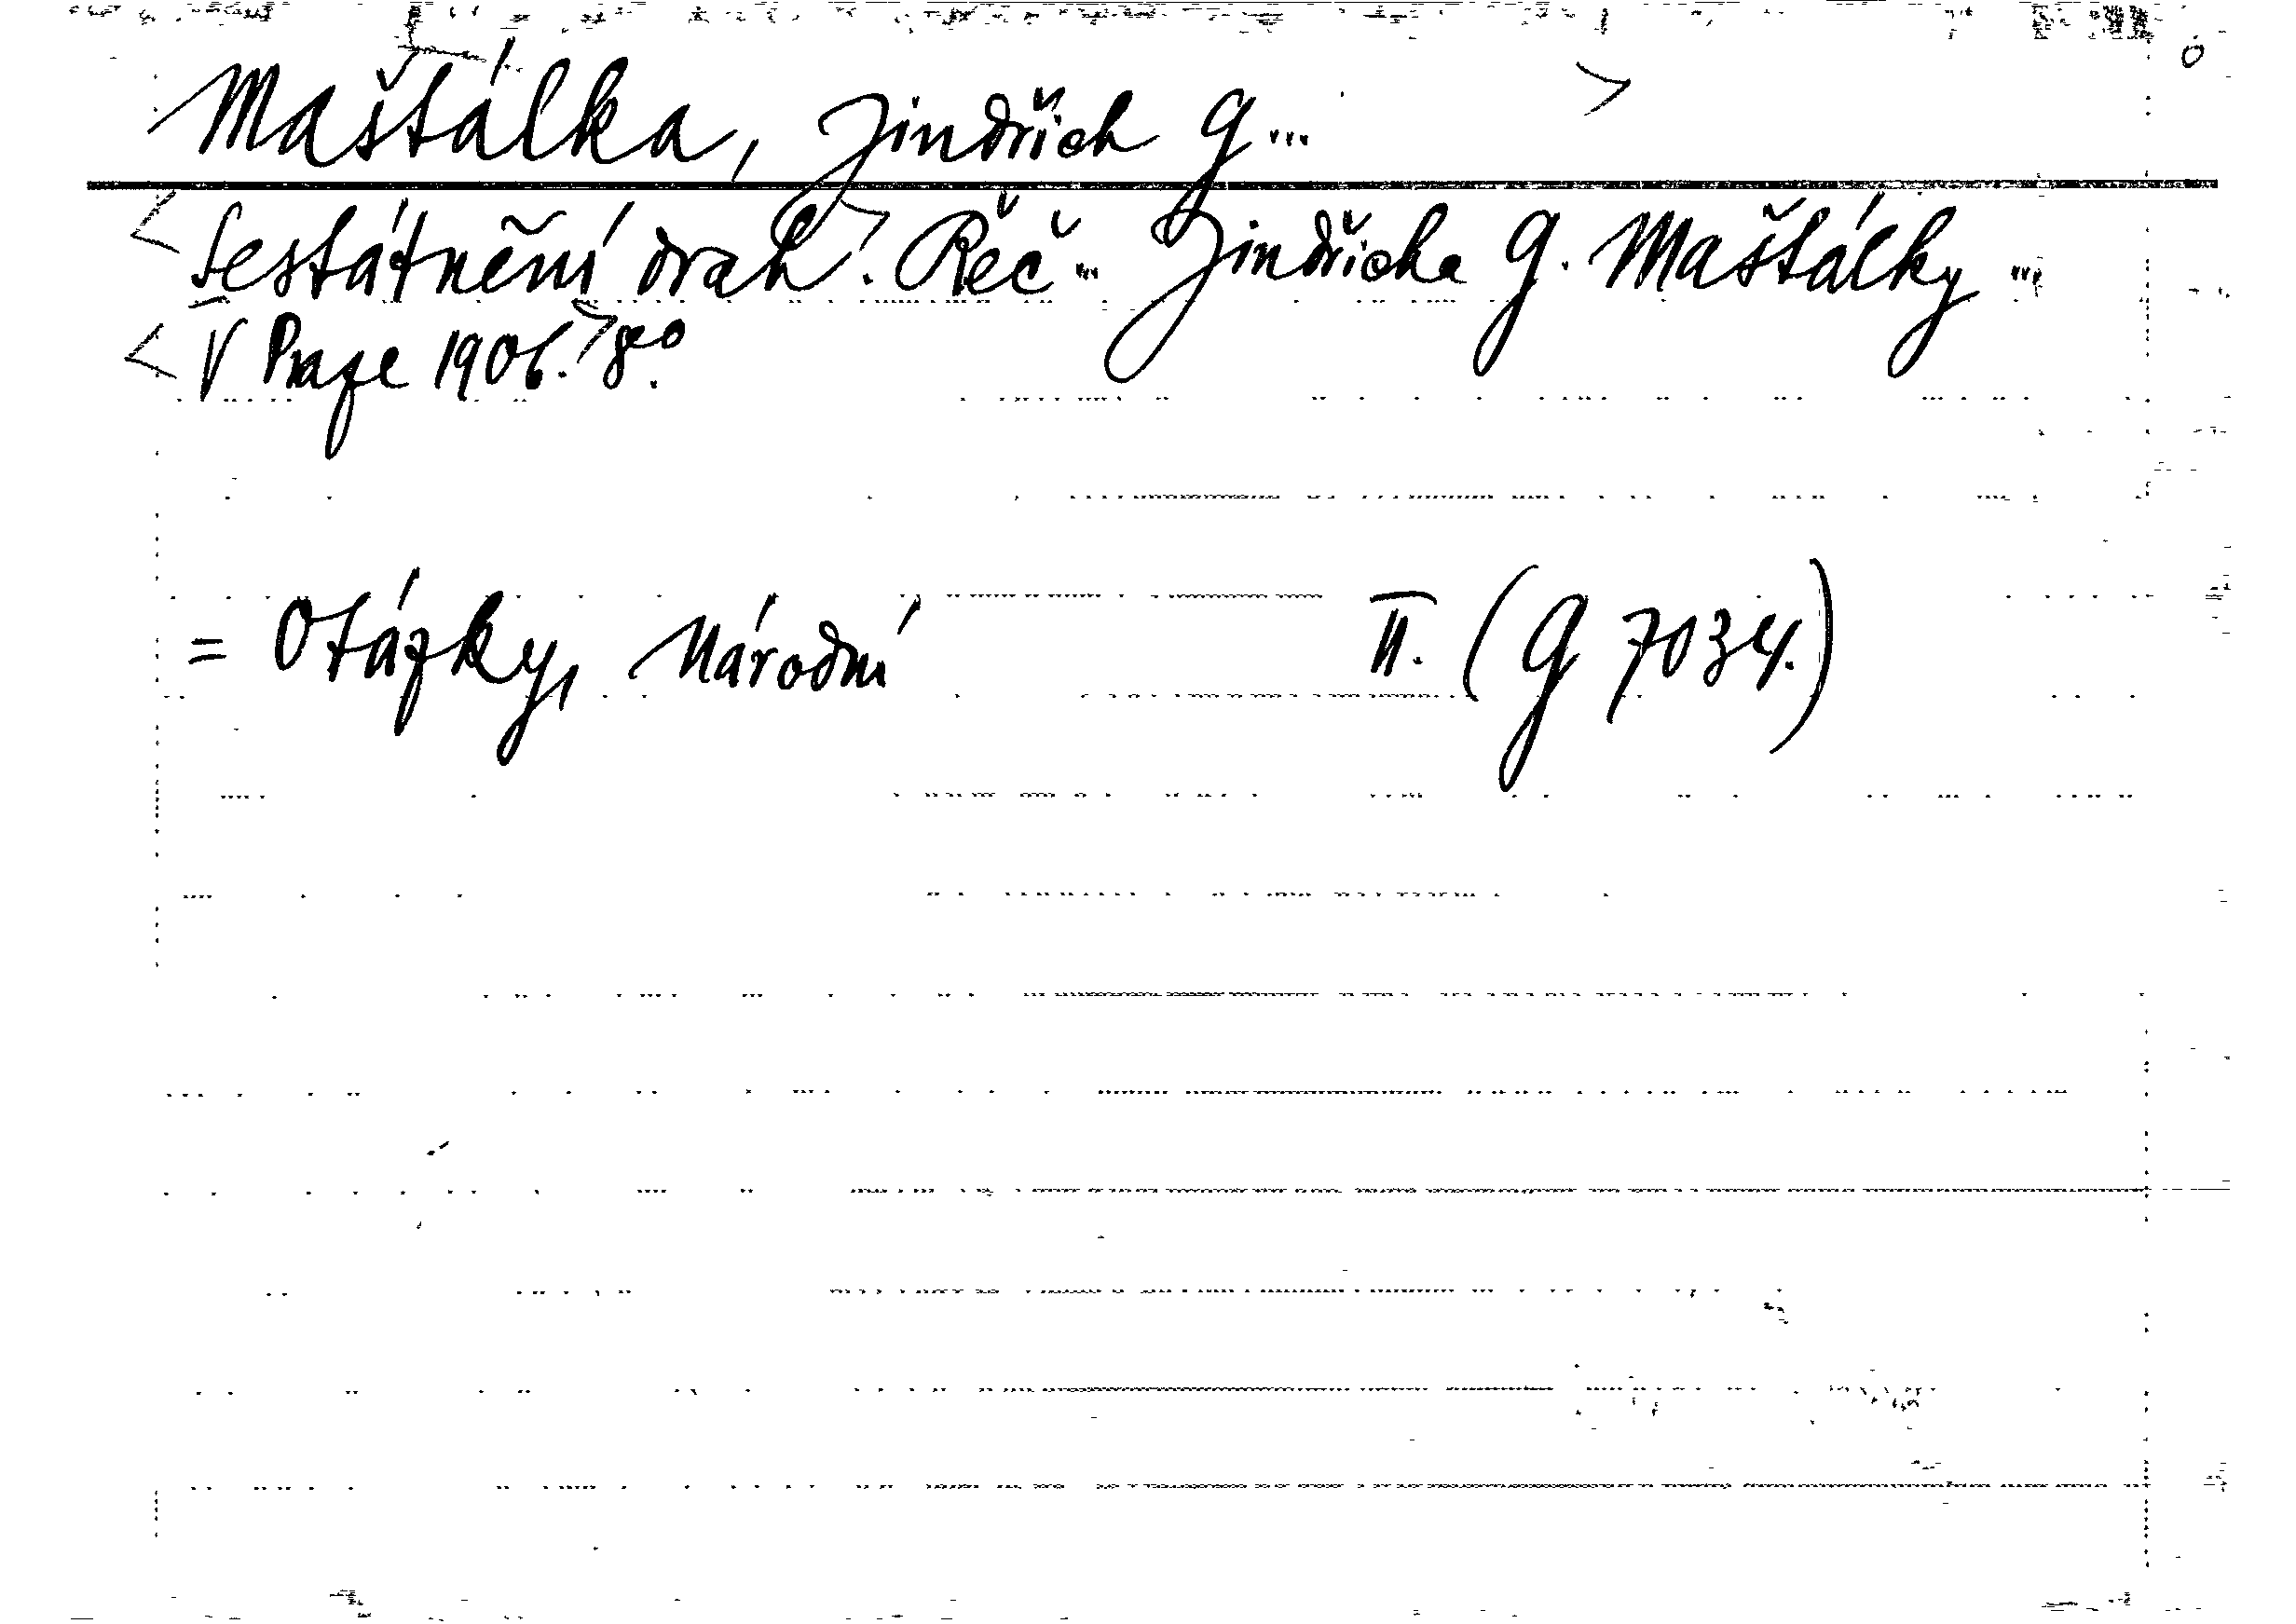 Maštálka, Jindřich G...
Sestátnění drah. Řeč... Jindřicha G. Maštálky...
V Praze 1906. 8°.
= Otázky, Národní II. (G 7034.)